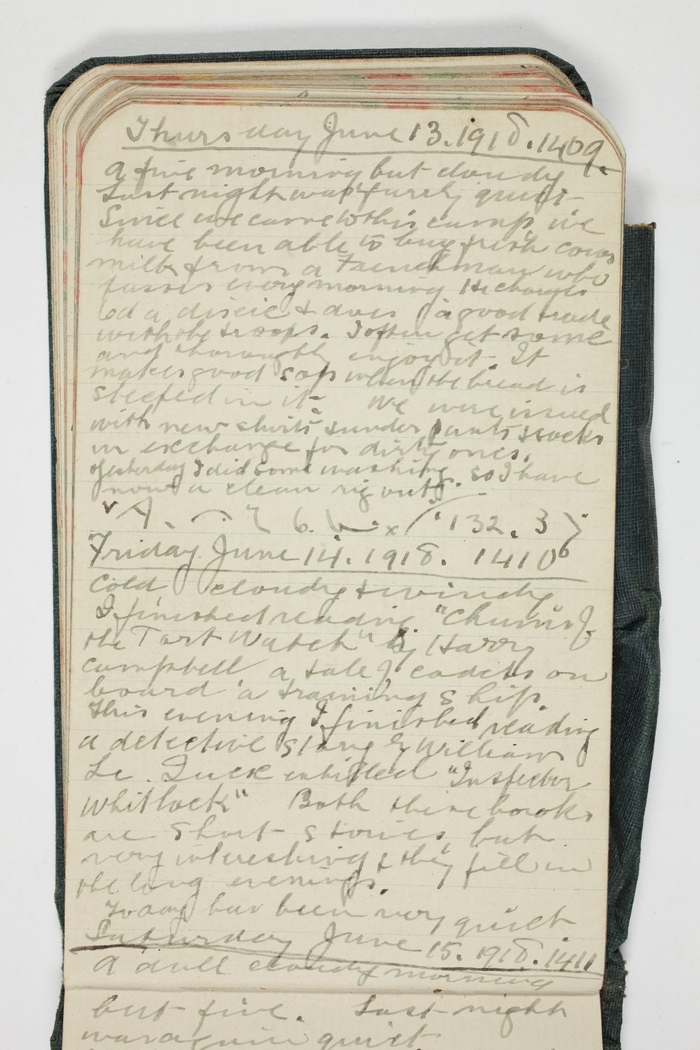 Thursday June 13. 1918. 1409.
A fine morning but cloudy
Last night was fairly quiet
Since we came to this camp, we
have been able to buy fresh cows
milk from a Frenchman who
passes every morning He charges
6d a dixie & does a good trade
with the troops. I often get some
and thoroughly enjoy it. It
makes good sop when the bread is
steeped in it. We were issued
with new shirts & under pants & socks
in exchange for dirty ones.
Yesterday I did some washing. so I have
now a clean rig out.
132. 3
Friday June 14. 1918. 1410
Cold cloudy & windy
I finished reading "Chums of
the Tart Watch" by Harry
Campbell a tale of cadets on
board a training ship.
This evening I finished reading
a detective story by William
Le. Quex entitled "Inspector
Whitlock" Both these books
are short stories, but
very interesting & they fill in
the long evenings.
Today has been very quiet
Saturday June 15. 1918. 1411
A dull cloudy morning
but fine. Last night
was again quiet